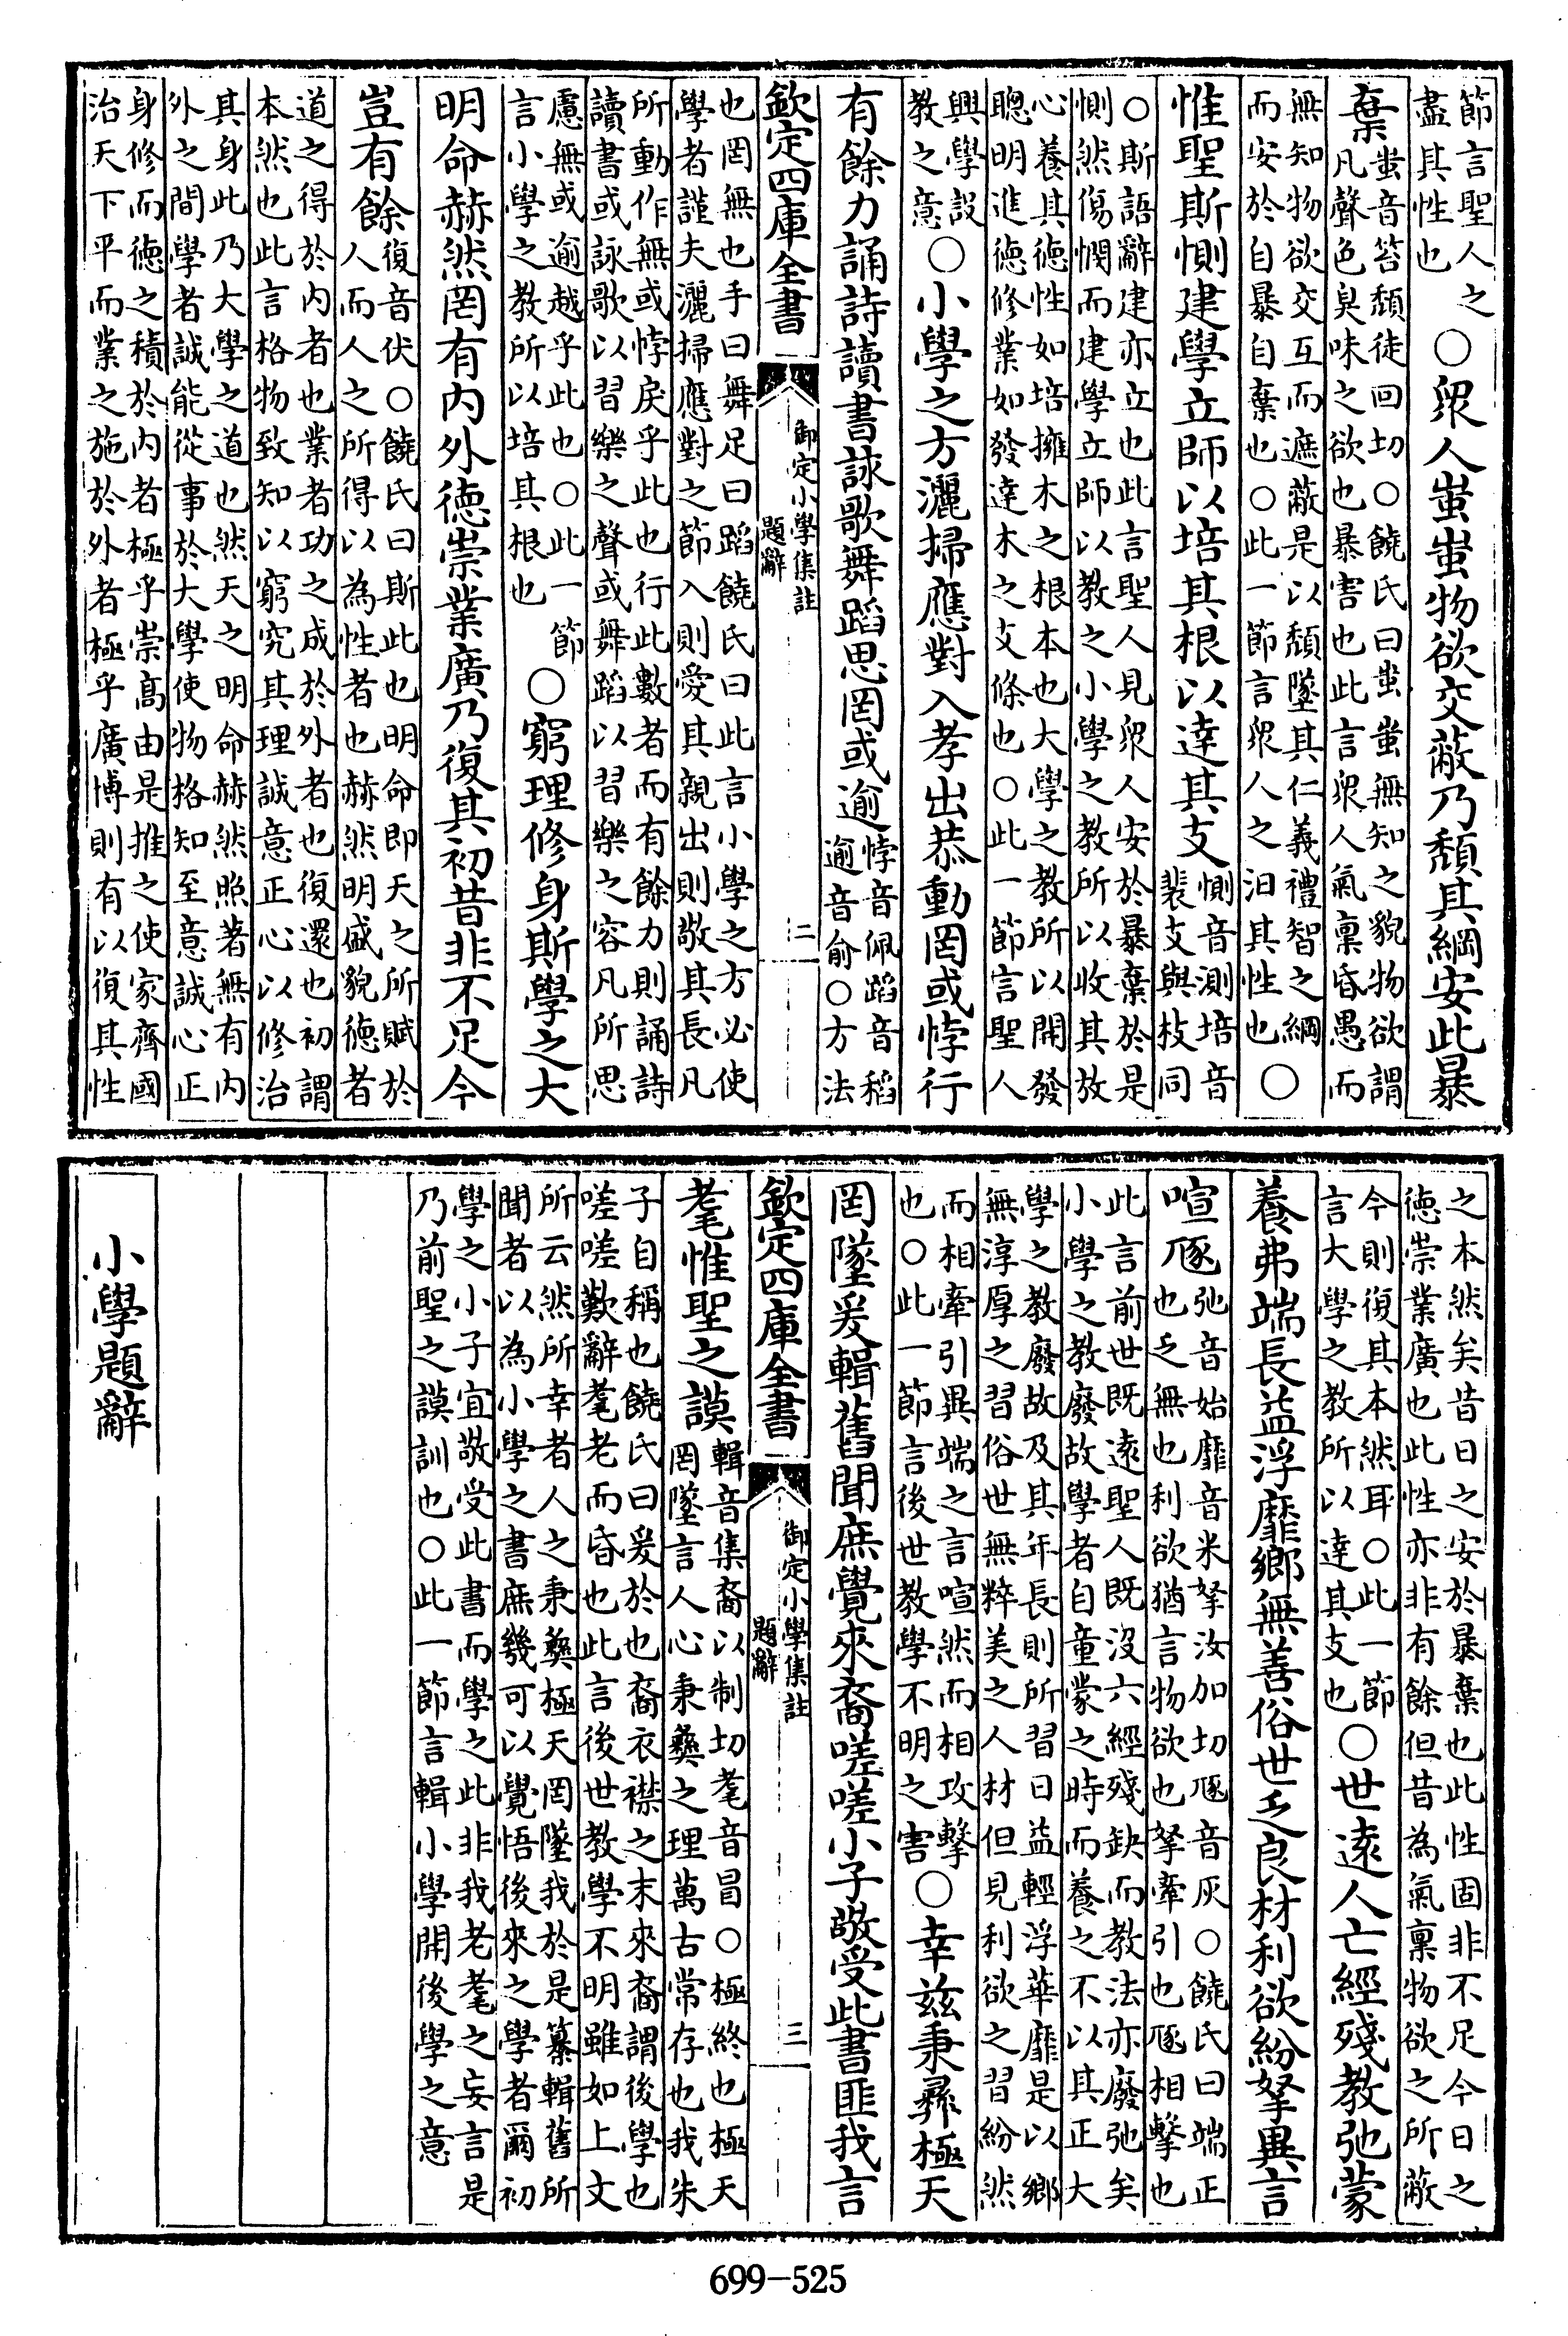 節言聖人之
盡其性也
○衆人蚩蚩物欲交蔽乃頹其綱安此暴
棄
蚩音笞頹徒回切○饒氏曰蚩蚩無知之貌物欲謂
凡聲色臭味之欲也暴害也此言衆人氣稟昏愚而
無知物欲交互而遮蔽是以頹墜其仁義禮智之綱
而安於自暴自棄也○此一節言衆人之汩其性也
○
惟聖斯惻建學立師以培其根以達其支
惻音測培音
裴支與枝同
○斯語辭建亦立也此言聖人見衆人安於暴棄於是
惻然傷憫而建學立師以教之小學之教所以收其放
心養其德性如培擁木之根本也大學之教所以開發
聰明進德修業如發達木之支條也○此一節言聖人
興學設
教之意
○小學之方灑掃應對入孝出恭動罔或悖行
有餘力誦詩讀書詠歌舞蹈思罔或逾
悖音佩蹈音稻
逾音俞○方法
欽定四庫全書
御定小學集註
題辭
二
也罔無也手曰舞足曰蹈饒氏曰此言小學之方必使
學者謹夫灑掃應對之節入則愛其親出則敬其長凡
所動作無或悖戾乎此也行此數者而有餘力則誦詩
讀書或詠歌以習樂之聲或舞蹈以習樂之容凡所思
慮無或逾越乎此也○此一節
言小學之教所以培其根也
○窮理修身斯學之大
明命赫然罔有內外德崇業廣乃復其初昔非不足今
豈有餘
復音伏○饒氏曰斯此也明命即天之所賦於
人而人之所得以為性者也赫然明盛貌德者
道之得於內者也業者功之成於外者也復還也初謂
本然也此言格物致知以窮究其理誠意正心以修治
其身此乃大學之道也然天之明命赫然照著無有內
外之間學者誠能從事於大學使物格知至意誠心正
身修而德之積於內者極乎崇高由是推之使家齊國
治天下平而業之施於外者極乎廣博則有以復其性
之本然矣昔日之安於暴棄也此性固非不足今日之
德崇業廣也此性亦非有餘但昔為氣稟物欲之所蔽
今則復其本然耳○此一節
言大學之教所以達其支也
○世遠人亡經殘教弛蒙
養弗端長益浮靡鄉無善俗世乏良材利欲紛拏異言
喧豗
弛音始靡音米拏汝加切豗音灰○饒氏曰端正
也乏無也利欲猶言物欲也拏牽引也豗相擊也
此言前世既遠聖人既沒六經殘缺而教法亦廢弛矣
小學之教廢故學者自童蒙之時而養之不以其正大
學之教廢故及其年長則所習日益輕浮華靡是以鄉
無淳厚之習俗世無粹美之人材但見利欲之習紛然
而相牽引異端之言喧然而相攻擊
也○此一節言後世教學不明之害
○幸茲秉彝極天
罔墜爰輯舊聞庶覺來裔嗟嗟小子敬受此書匪我言
欽定四庫全書
御定小學集註
題辭
三
耄惟聖之謨
輯音集裔以制切耄音冒○極終也極天
罔墜言人心秉彝之理萬古常存也我朱
子自稱也饒氏曰爰於也裔衣襟之末來裔謂後學也
嗟嗟歎辭耄老而昏也此言後世教學不明雖如上文
所云然所幸者人之秉彝極天罔墜我於是纂輯舊所
聞者以為小學之書庶幾可以覺悟後來之學者爾初
學之小子宜敬受此書而學之此非我老耄之妄言是
乃前聖之謨訓也○此一節言輯小學開後學之意
小學題辭
699-525